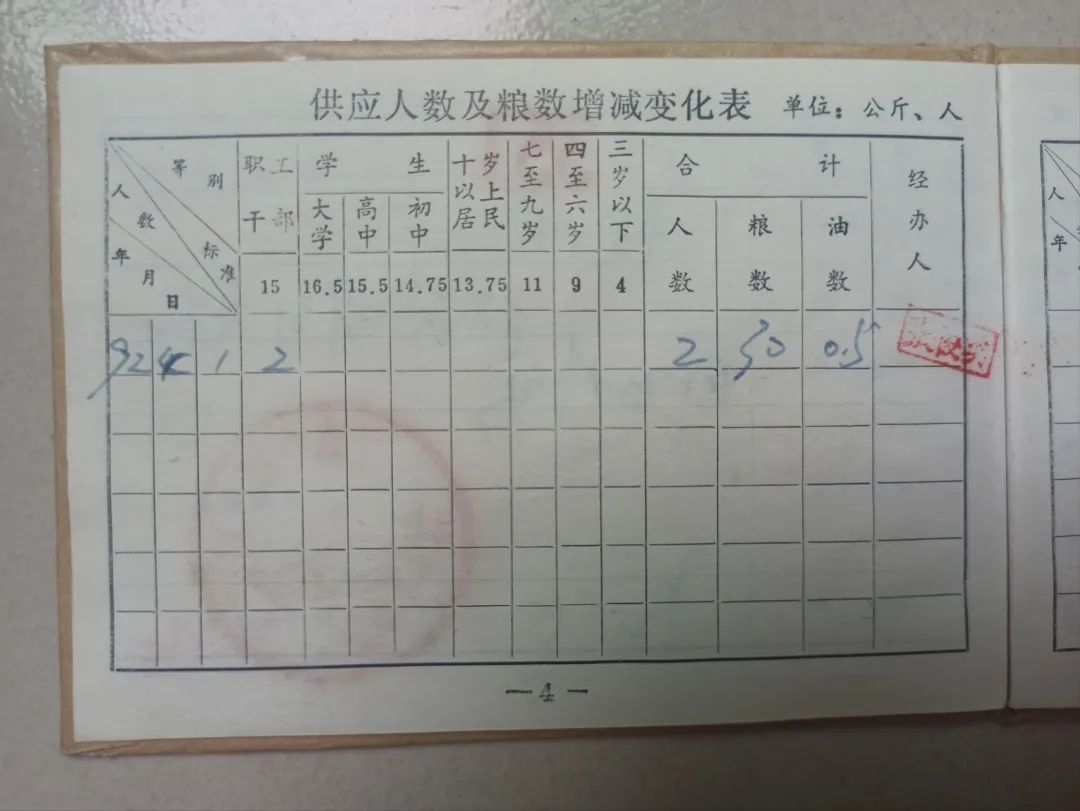 供应人数及粮数增减变化表 单位：公斤、人
等别 人数 标准 年月日
职工干部 学生 十岁以上居民 七至九岁 四至六岁 三岁以下 合计 经办人
大学 高中 初中 人数 粮数 油数
15 16.5 15.5 14.75 13.75 11 9 4
92 4 1 2 2 30 0.5
—4—
人
年